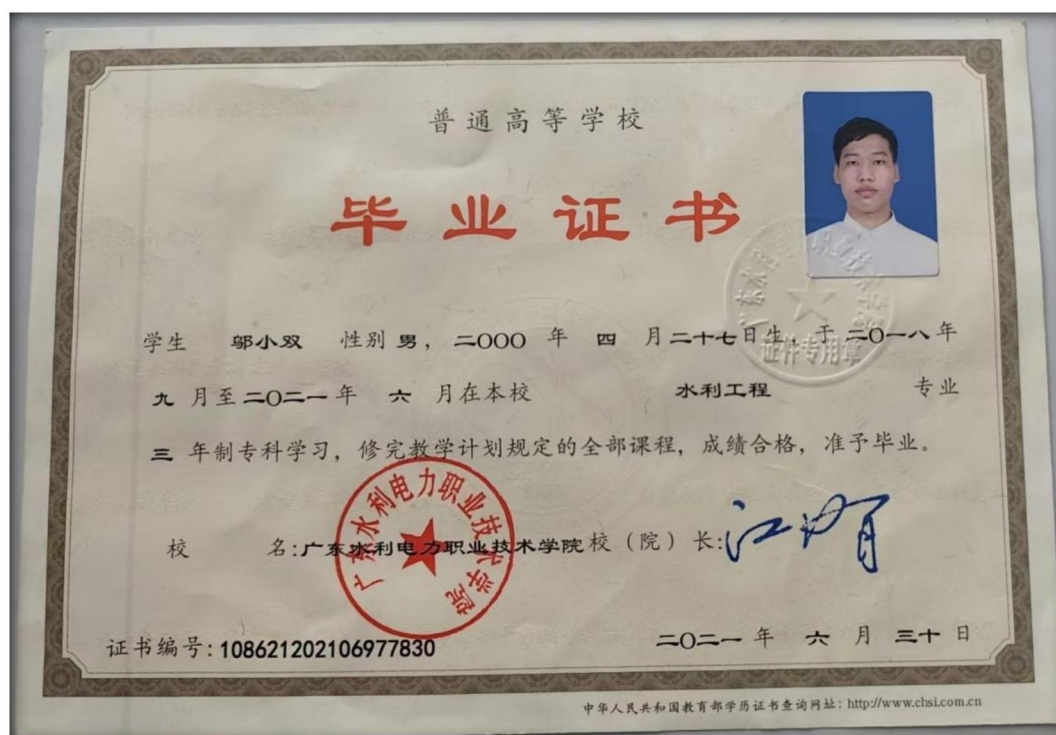 普通高等学校
毕业证书
学生 邬小双 性别 男，二OOO 年 四 月二十七日生，于二O一八年
九 月至二O二一年 六 月在本校 水利工程 专业
三 年制专科学习，修完教学计划规定的全部课程，成绩合格，准予毕业。
校 名:广东水利电力职业技术学院 校（院）长:
广东水利电力职业技术学院
证件专用章
证书编号:108621202106977830
二O二一 年 六 月 三十 日
中华人民共和国教育部学历证书查询网址: http://www.chsi.com.cn